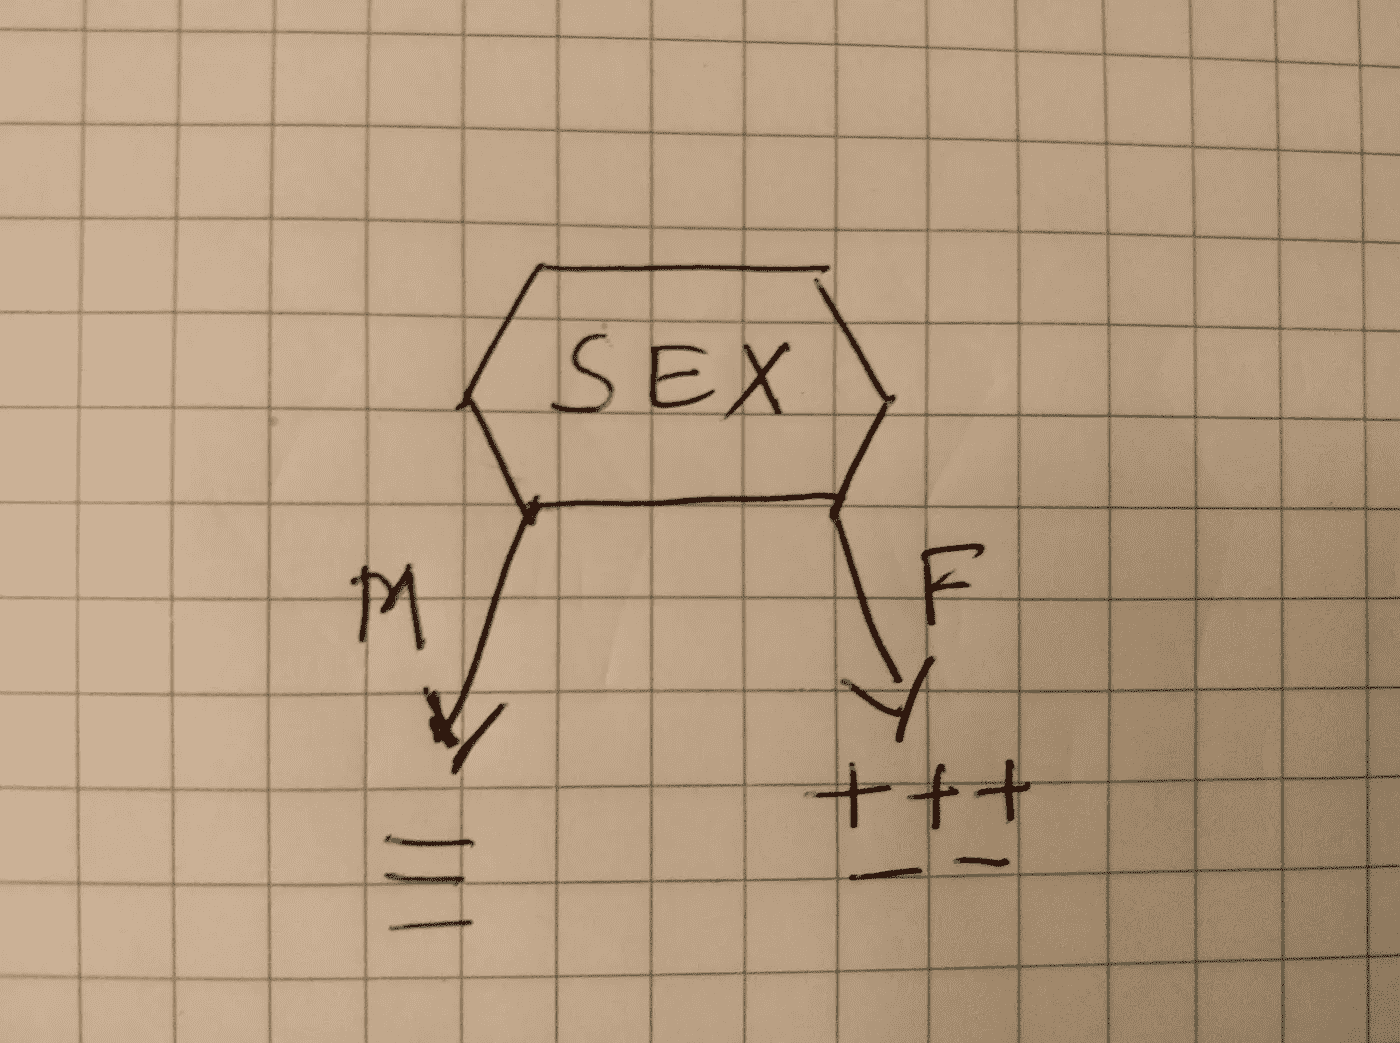 SEX
M
F
+ + +
- -